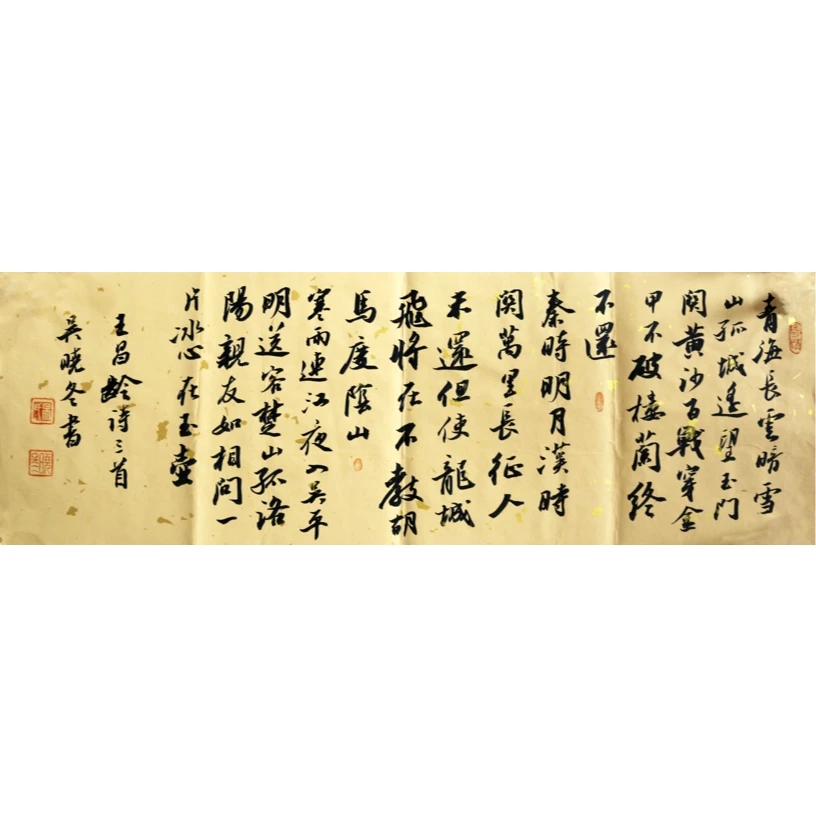 青海長雲暗雪
山孤城遙望玉門
関黄沙百戰穿金
甲不破樓蘭終
不還
秦時明月漢時
関萬里長征人
未還但使龍城
飛將在不教胡
馬度陰山
寒雨連江夜入吳平
明送客楚山孤洛
陽親友如相問一
片冰心在玉壺
王昌齡詩三首
吳曉冬書